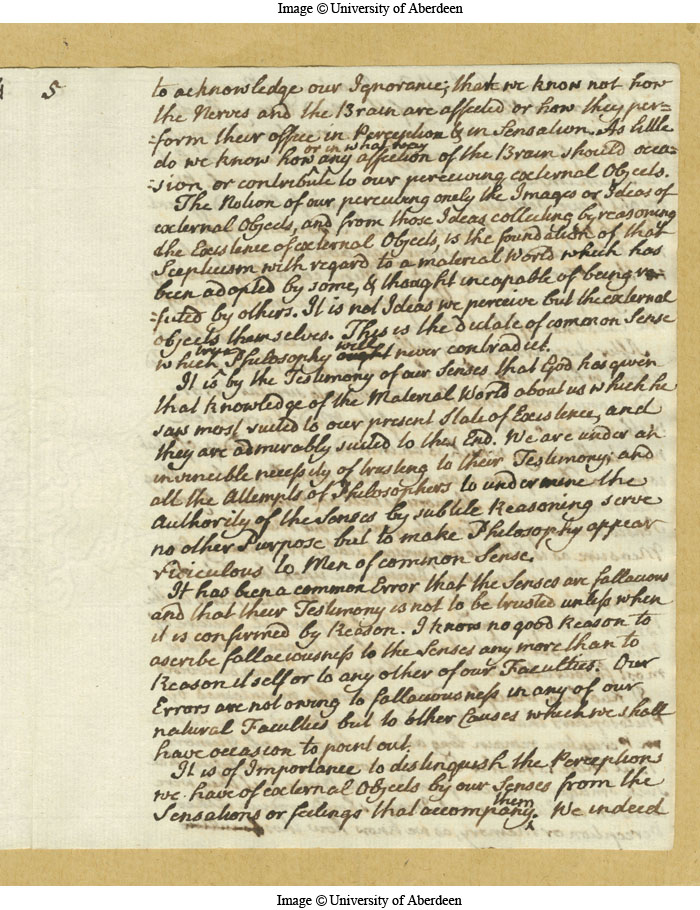 Image © University of Aberdeen
5
to acknowledge our Ignorance; that we know not how
the Nerves and the Brain are affected or how they per=
=form their office in Perception & in Sensation. As little
or in what way
do we know how ^ any affection of the Brain should occa=
=sion or contribute to our perceiving external Objects.
The Notion of our perceiving onely the Images or Ideas of
external Objects, and from those Ideas collecting by reasoning
the Existence of external Objects, is the foundation of that
Scepticism with regard to a material World which has
been adopted by some, & thought incapable of being re=
=futed by others. It is not Ideas we perceive but the external
objects themselves. This is the dictate of common Sense
true will
which Philosophy ought never contradict.
It is by the Testimony of our Senses that God has given
that knowledge of the Material World about us which he
saw most suited to our present State of Existence, and
they are admirably suited to the End. We are under an
invincible necessity of trusting to their Testimony; and
all the Attempts of Philosophers to undermine the
Authority of the Senses by subtile Reasoning serve
no other Purpose but to make Philosophy appear
ridiculous to Men of common Sense.
It has been a common Error that the Senses are fallacious
and that their Testimony is not to be trusted unless when
it is confirmed by Reason. I know no good Reason to
ascribe fallaciousness to the Senses any more than to
Reason itself or to any other of our Faculties. Our
Errors are not owing to fallaciousness in any of our
natural Faculties but to other Causes which we shall
have occasion to point out.
It is of Importance to distinguish the Perceptions
we have of external Objects by our Senses from the
them
Sensations or feelings that accompany ^. We indeed
Image © University of Aberdeen